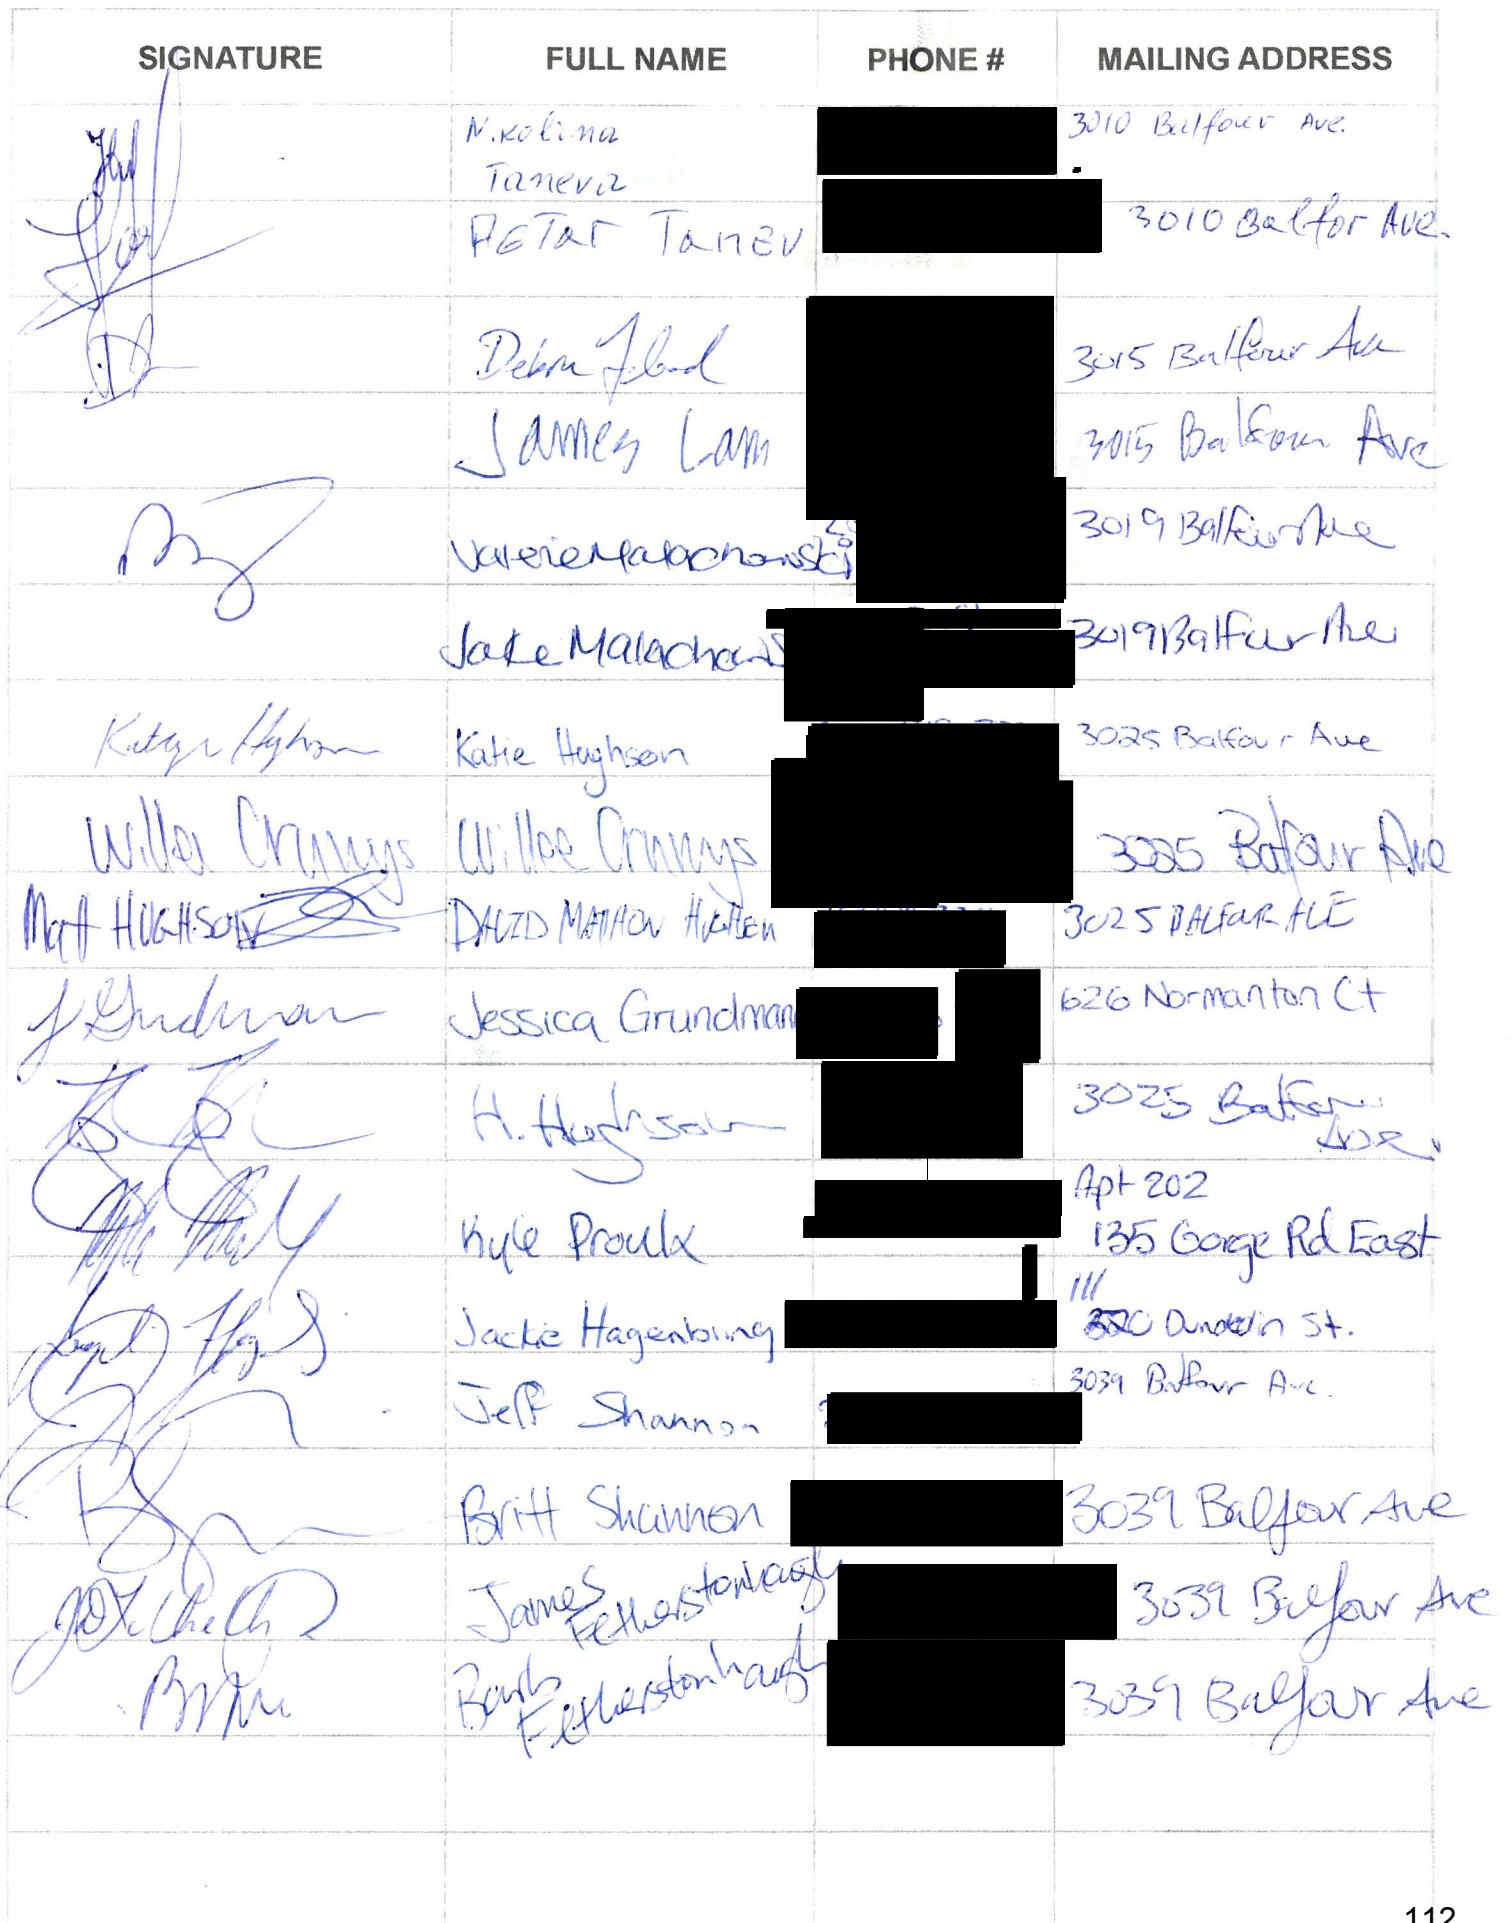 SIGNATURE FULL NAME PHONE # MAILING ADDRESS
N.kolina 3010 Balfour Ave.
Taneva
PETar TanEV 3010 Balfor Ave.
Debra 3015 Balfour Ave
James Lam 3015 Balfour Ave
Valerie Malachowski 3019 Balfour Ave
Jake Malachows 3019 Balfur Ave
Katie Hughson 3025 Balfour Ave
Willa Crannys 3025 Balfour Ave
Matt HUGHSON DAVID MATTHEW HUGHSEN 3025 BALFOUR AVE
J Grundman Jessica Grundman 626 Normanton Ct
H. Hughson 3025 Balfour
Ave.
Apt 202
Kyle Proulx 135 Gorge Rd East
111
Jackie Dunedin St.
Jeff Shannon 3039 Balfour Ave.
Britt Shannon 3039 Balfour Ave
James 3039 Balfour Ave
Fetherstonhaugh
Barb 3039 Balfour Ave
Fetherstonhaugh
112